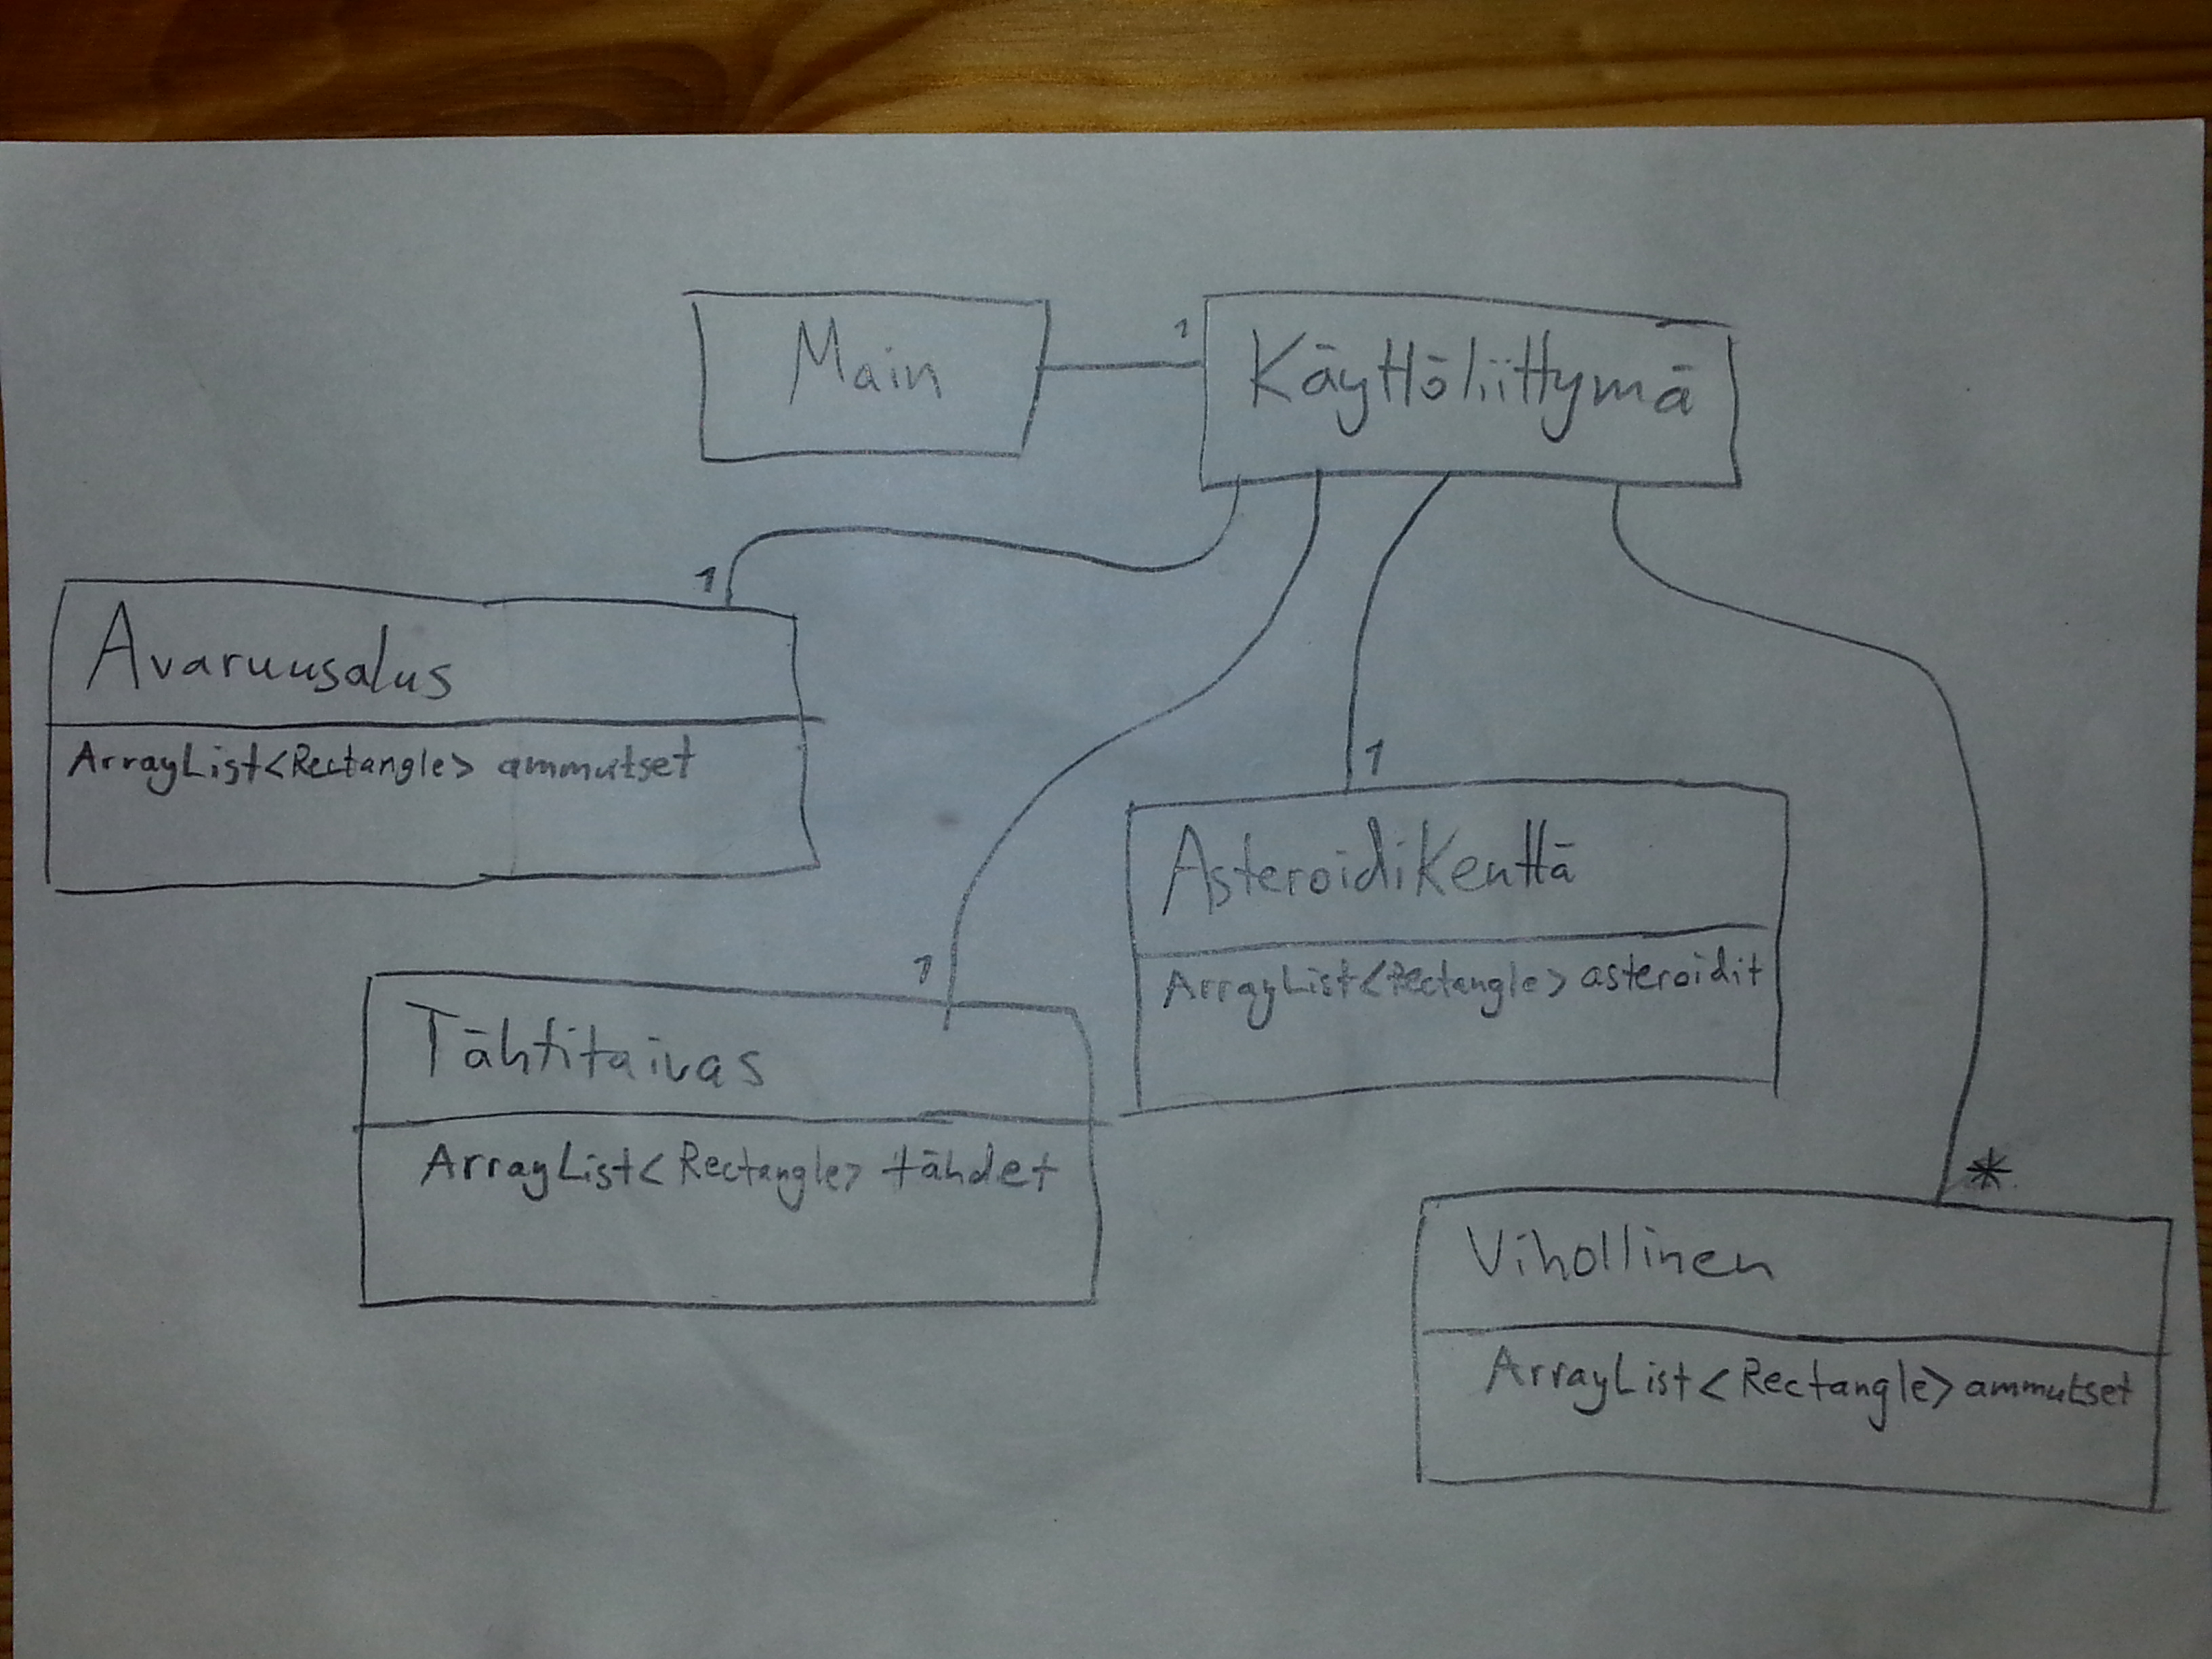 Main
1
Käyttöliittymä
1
Avaruusalus
ArrayList<Rectangle> ammutset
1
AsteroidiKenttä
ArrayList<Rectangle> asteroidit
1
Tähtitaivas
ArrayList<Rectangle> tähdet
*
Vihollinen
ArrayList<Rectangle> ammutset